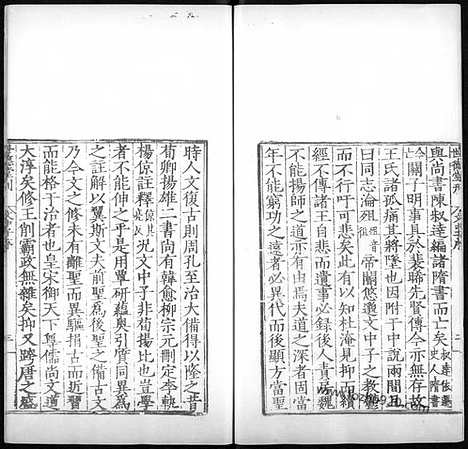 與尚書陳叔達編諸隋書而亡矣
今關子明事具於裴晞先賢傳今亦無存故
王氏諸孤痛其將墜也因附于中說兩間且
曰同志淪殂帝閽悠邈文中子之教
而不行吁可悲矣此有以知杜淹見抑而
經不傳諸王自悲而遺事必錄後人責房魏
不能揚師之道亦有由焉夫道之深者固當
年不能窮功之遠者必異代而後顯方當聖
時人文復古則周孔至治大備得以隆之昔
荀卿揚雄二書尚有韓愈柳宗元刪定李軌
楊倞註釋況文中子非荀揚比也豈學
者不能伸之乎是用覃研蘊奧引質同異為
之註解以翼斯文夫前聖為後聖之備古文
乃今文之修未有離聖而異驅捐古而近習
而能格于治者也皇宋御天下尊儒尚文道
大淳矣修王削霸政無雜矣抑又跨唐之盛